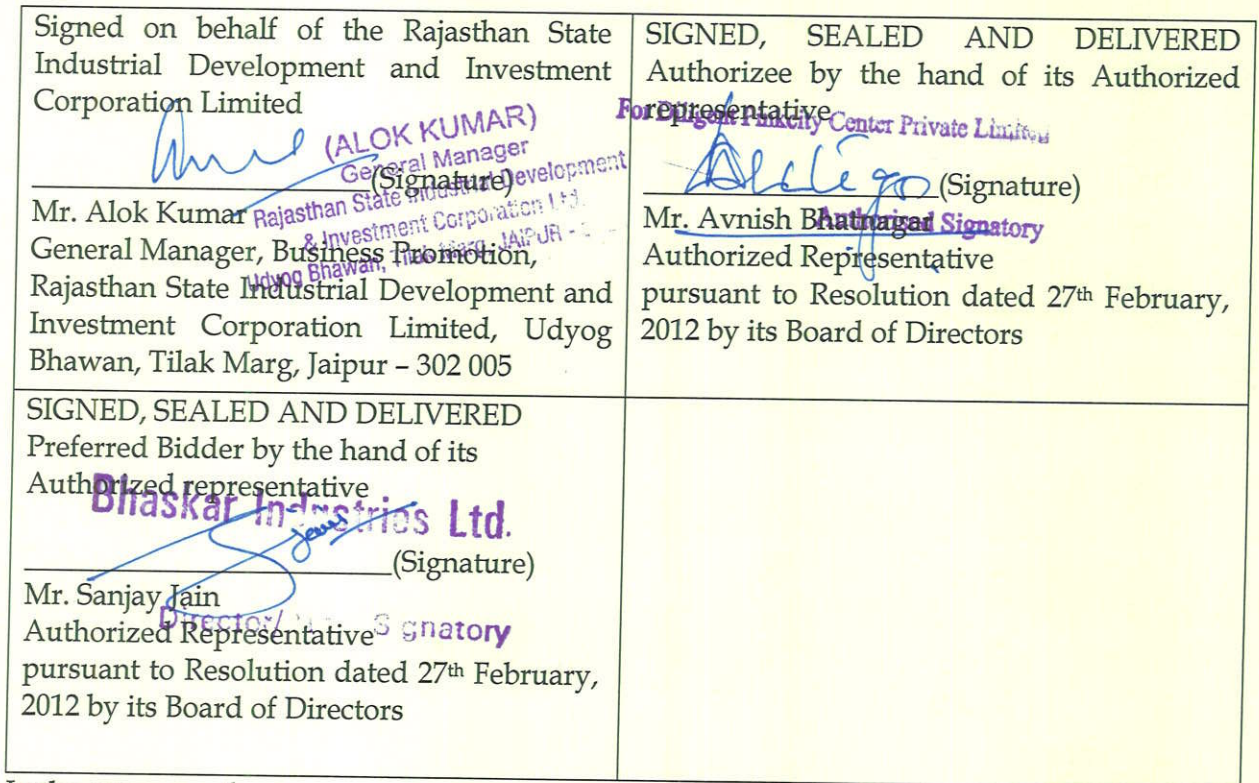 Signed on behalf of the Rajasthan State
Industrial Development and Investment
Corporation Limited
(ALOK KUMAR)
General Manager
Rajasthan State Industrial Development
& Investment Corporation Ltd.
Udyog Bhawan, Tilak Marg, JAIPUR -
(Signature)
Mr. Alok Kumar
General Manager, Business Promotion,
Rajasthan State Industrial Development and
Investment Corporation Limited, Udyog
Bhawan, Tilak Marg, Jaipur – 302 005
SIGNED, SEALED AND DELIVERED
Authorizee by the hand of its Authorized
representative
For Diligent Pinkcity Center Private Limited
(Signature)
Mr. Avnish Bhatnagar
Authorised Signatory
Authorized Representative
pursuant to Resolution dated 27th February,
2012 by its Board of Directors
SIGNED, SEALED AND DELIVERED
Preferred Bidder by the hand of its
Authorized representative
Bhaskar Industries Ltd.
(Signature)
Mr. Sanjay Jain
Director/ Signatory
Authorized Representative
pursuant to Resolution dated 27th February,
2012 by its Board of Directors